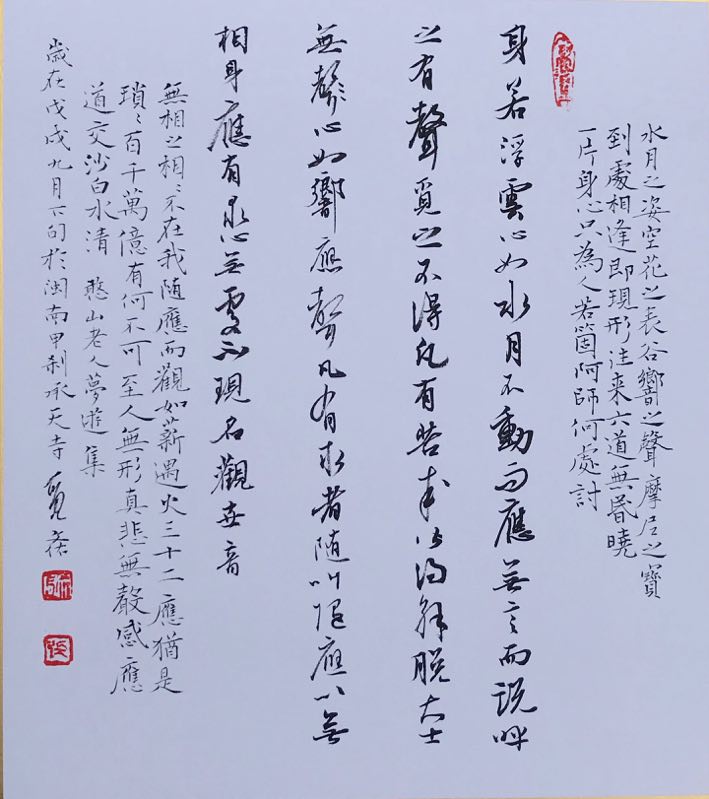 水月之姿空花之表谷響之聲摩尼之寶
到處相逢即現形往来六道無昏曉
一片身心只為人若箇阿師何處討
身若浮雲心如水月不動而應無言而說呼
之有聲覓之不得凡有苦求以得解脱大士
無聲心如響應聲凡有求者随叫随應以無
相身應有求心無處不現名觀世音
無相之相〻不在我随應而觀如薪遇火三十二應猶是
瑣〻百千萬億有何不可至人無形真悲無聲感應
道交沙白水清 憨山老人夢遊集
歲在戊戌九月下旬於閩南甲刹承天寺